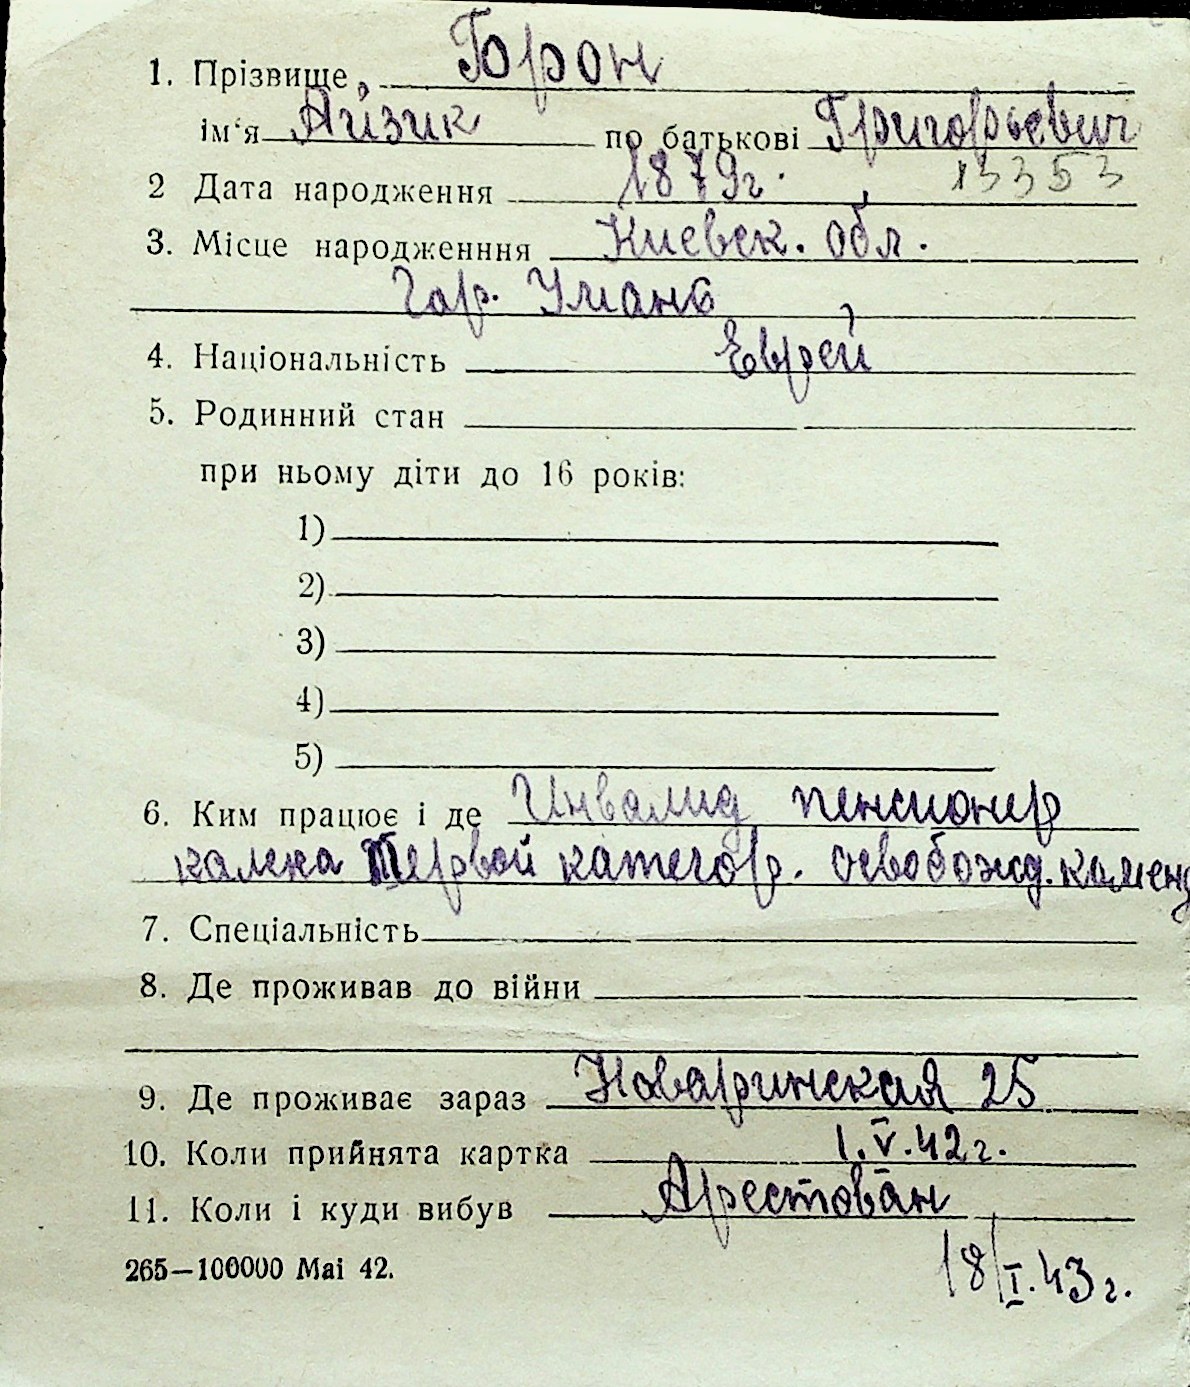 1. Прізвище Горон
ім‘я Айзик по батькові Григорьевич
2 Дата народження 1879г. 13353
3. Місце народженння Киевск. обл.
гор. Умань
4. Національність Еврей
5. Родинний стан
при ньому діти до 16 років:
1)
2)
3)
4)
5)
6. Ким працює і де Инвалид пенсионер
калека Первой категор. освобожд. коменд
7. Спеціальність
8. Де проживав до війни
9. Де проживає зараз Новаринская 25
10. Коли прийнята картка 1.V.42г.
11. Коли і куди вибув Арестован
265—100000 Mai 42. 18/I.43г.